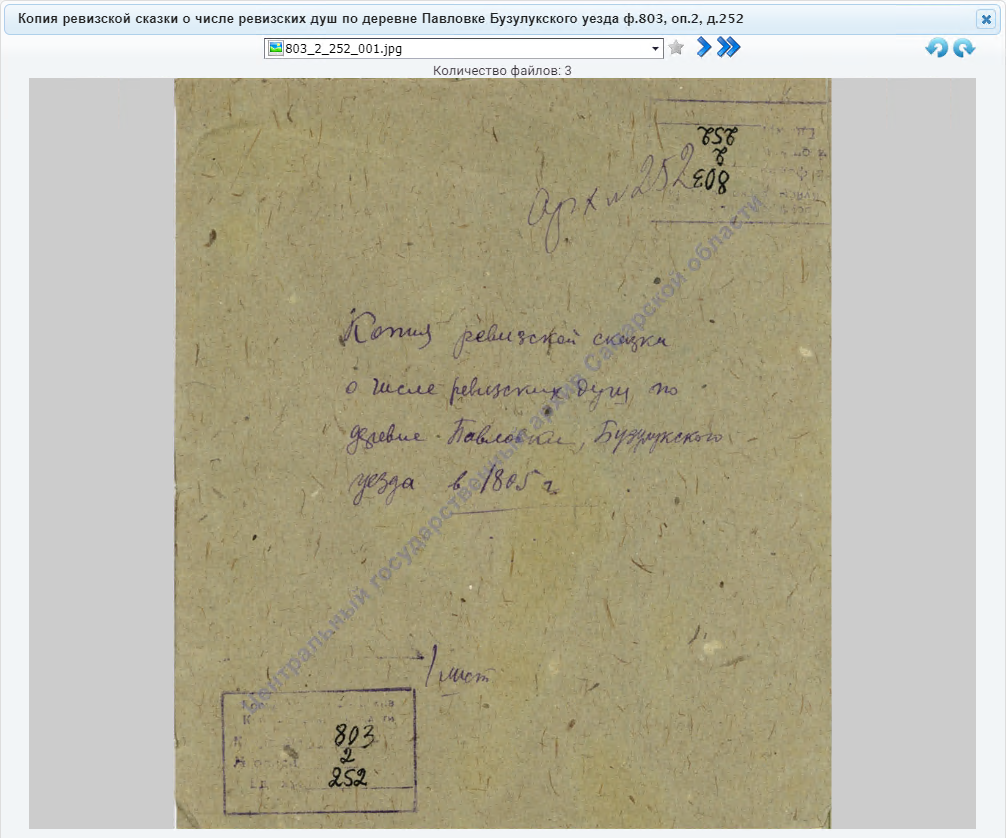 Копия ревизской сказки о числе ревизских душ по деревне Павловке Бузулукского уезда ф.803, оп.2, д.252
803_2_252_001.jpg
Количество файлов: 3
252
2
803
Арх № 252
Копия ревизской сказки
о числе ревизских душ по
деревне Павловки, Бузулукского
уезда в 1805 г.
Центральный государственный архив Самарской области
1 лист
803
2
252